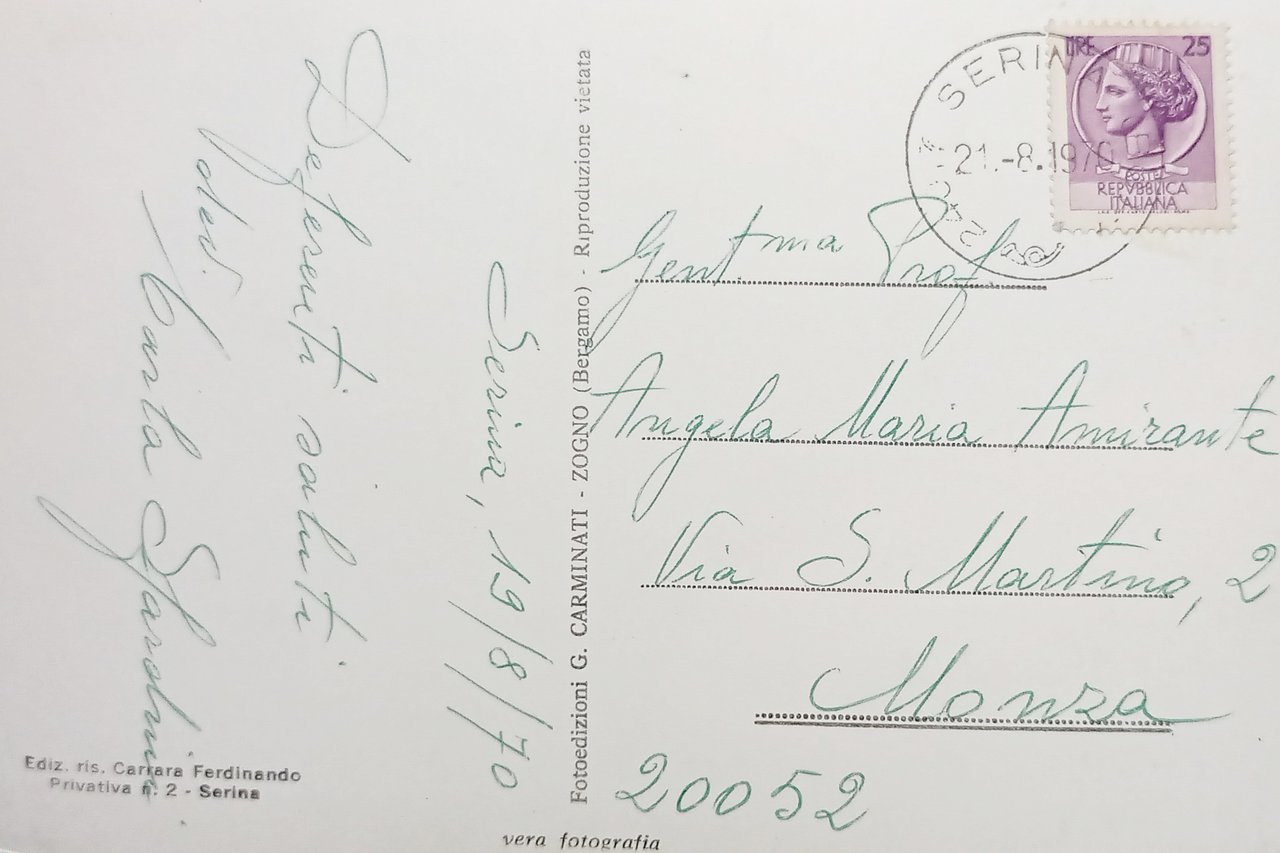 Serina, 19/8/70
Deferenti saluti
dev.
Carla
Fotoedizioni G. CARMINATI - ZOGNO (Bergamo) - Riproduzione vietata
Ediz. ris. Carrara Ferdinando
Privativa n. 2 - Serina
vera fotografia
LIRE 25
POSTE
REPVBBLICA
ITALIANA
SERINA
21.-8.1970
Gent.ma Prof.
Angela Maria Amirante
Via S. Martino, 2
Monza
20052